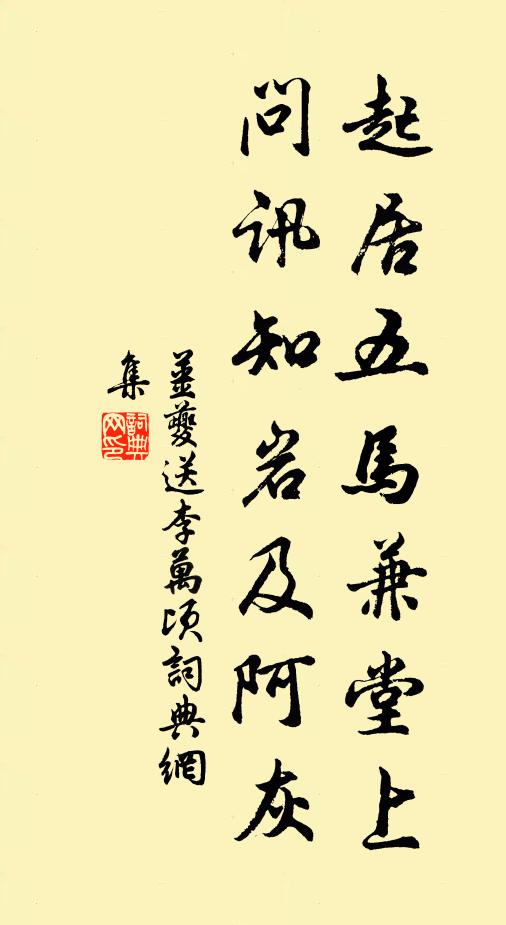 起居五馬兼堂上
問訊知岩及阿灰
姜夔送李萬頃詞典網
集
詞典
网印